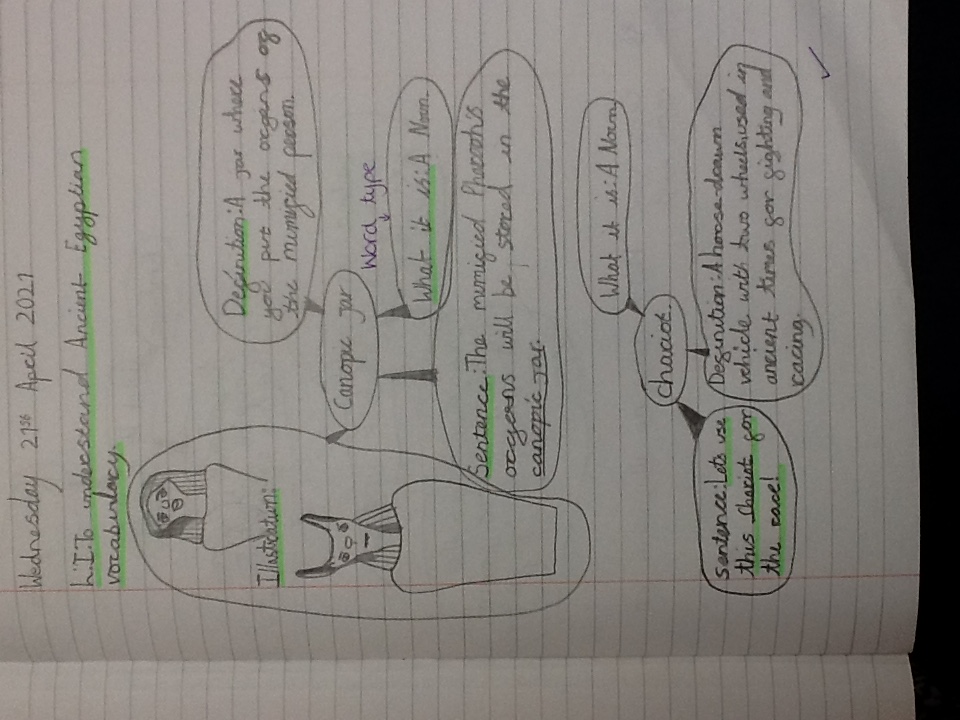 Wednesday 21st April 2021
L.I: To understand Ancient Egyptian
vocabulary.
Definition: A jar where
you put the organs of
the mumified person.
Illustration:
Canopic jar
Word type
What it is: A Noun
Sentence: The mumified Pharoah's
organs will be stored in the
canopic jar.
What it is: A Noun
Chariot.
Sentence: Lets use
this Chariot for
the race!
Definition: A horse-drawn
vehicle with two wheels, used in
ancient times for fighting and
racing.